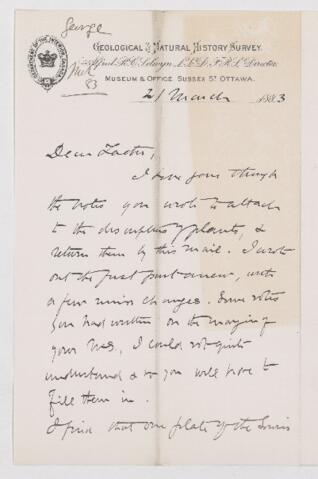 George
Mch
83
GEOLOGICAL & NATURAL HISTORY SURVEY.
Alfred R. C. Selwyn, L.L.D. F.R.S. Director.
MUSEUM & OFFICE SUSSEX ST OTTAWA.
DEPARTMENT OF THE INTERIOR CANADA
21 March 1883
Dear Father,
I have gone through
the notes you wrote to attach
to the description of plants, &
return them by this mail. I wrote
out the first part anew, with
a few minor changes. Some notes
you had written on the margin of
your M.S. I could not quite
understand & so you will have to
fill them in.
I find that one plate of the Souris